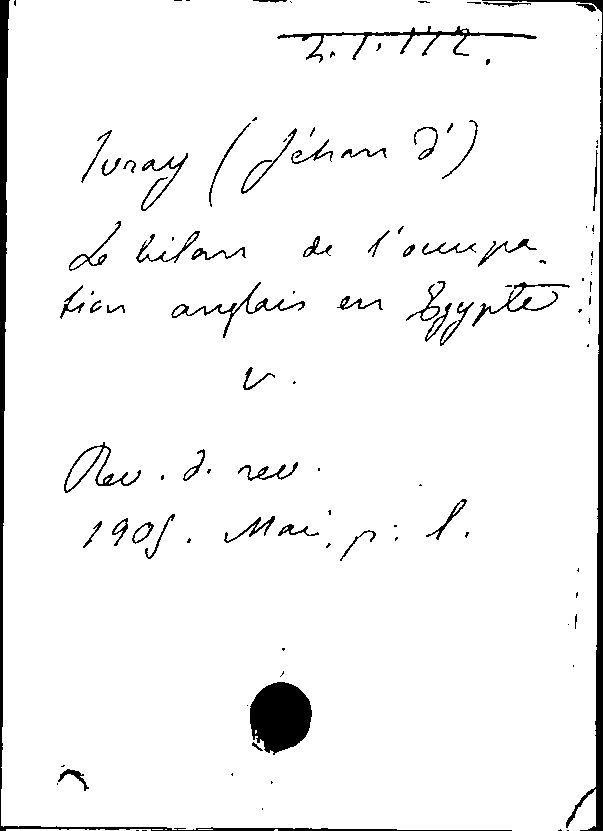 2.1.112.
Ivray (Jéhan d')
Le bilan de l'occupa-
tion anglais en Egypte
v.
Rev. d. rev.
1905. Mai, p. 1.